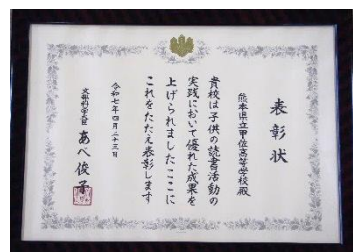 表彰状
熊本県立甲佐高等学校殿
貴校は子供の読書活動の
実践において優れた成果を
上げられましたここに
これをたたえ表彰します
令和七年四月二十三日
文部科学大臣 あべ俊子